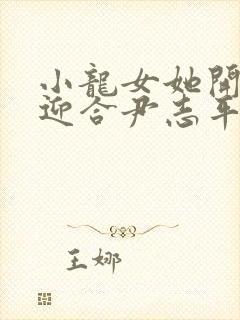 小龍女她開
迎合尹志平
王娜